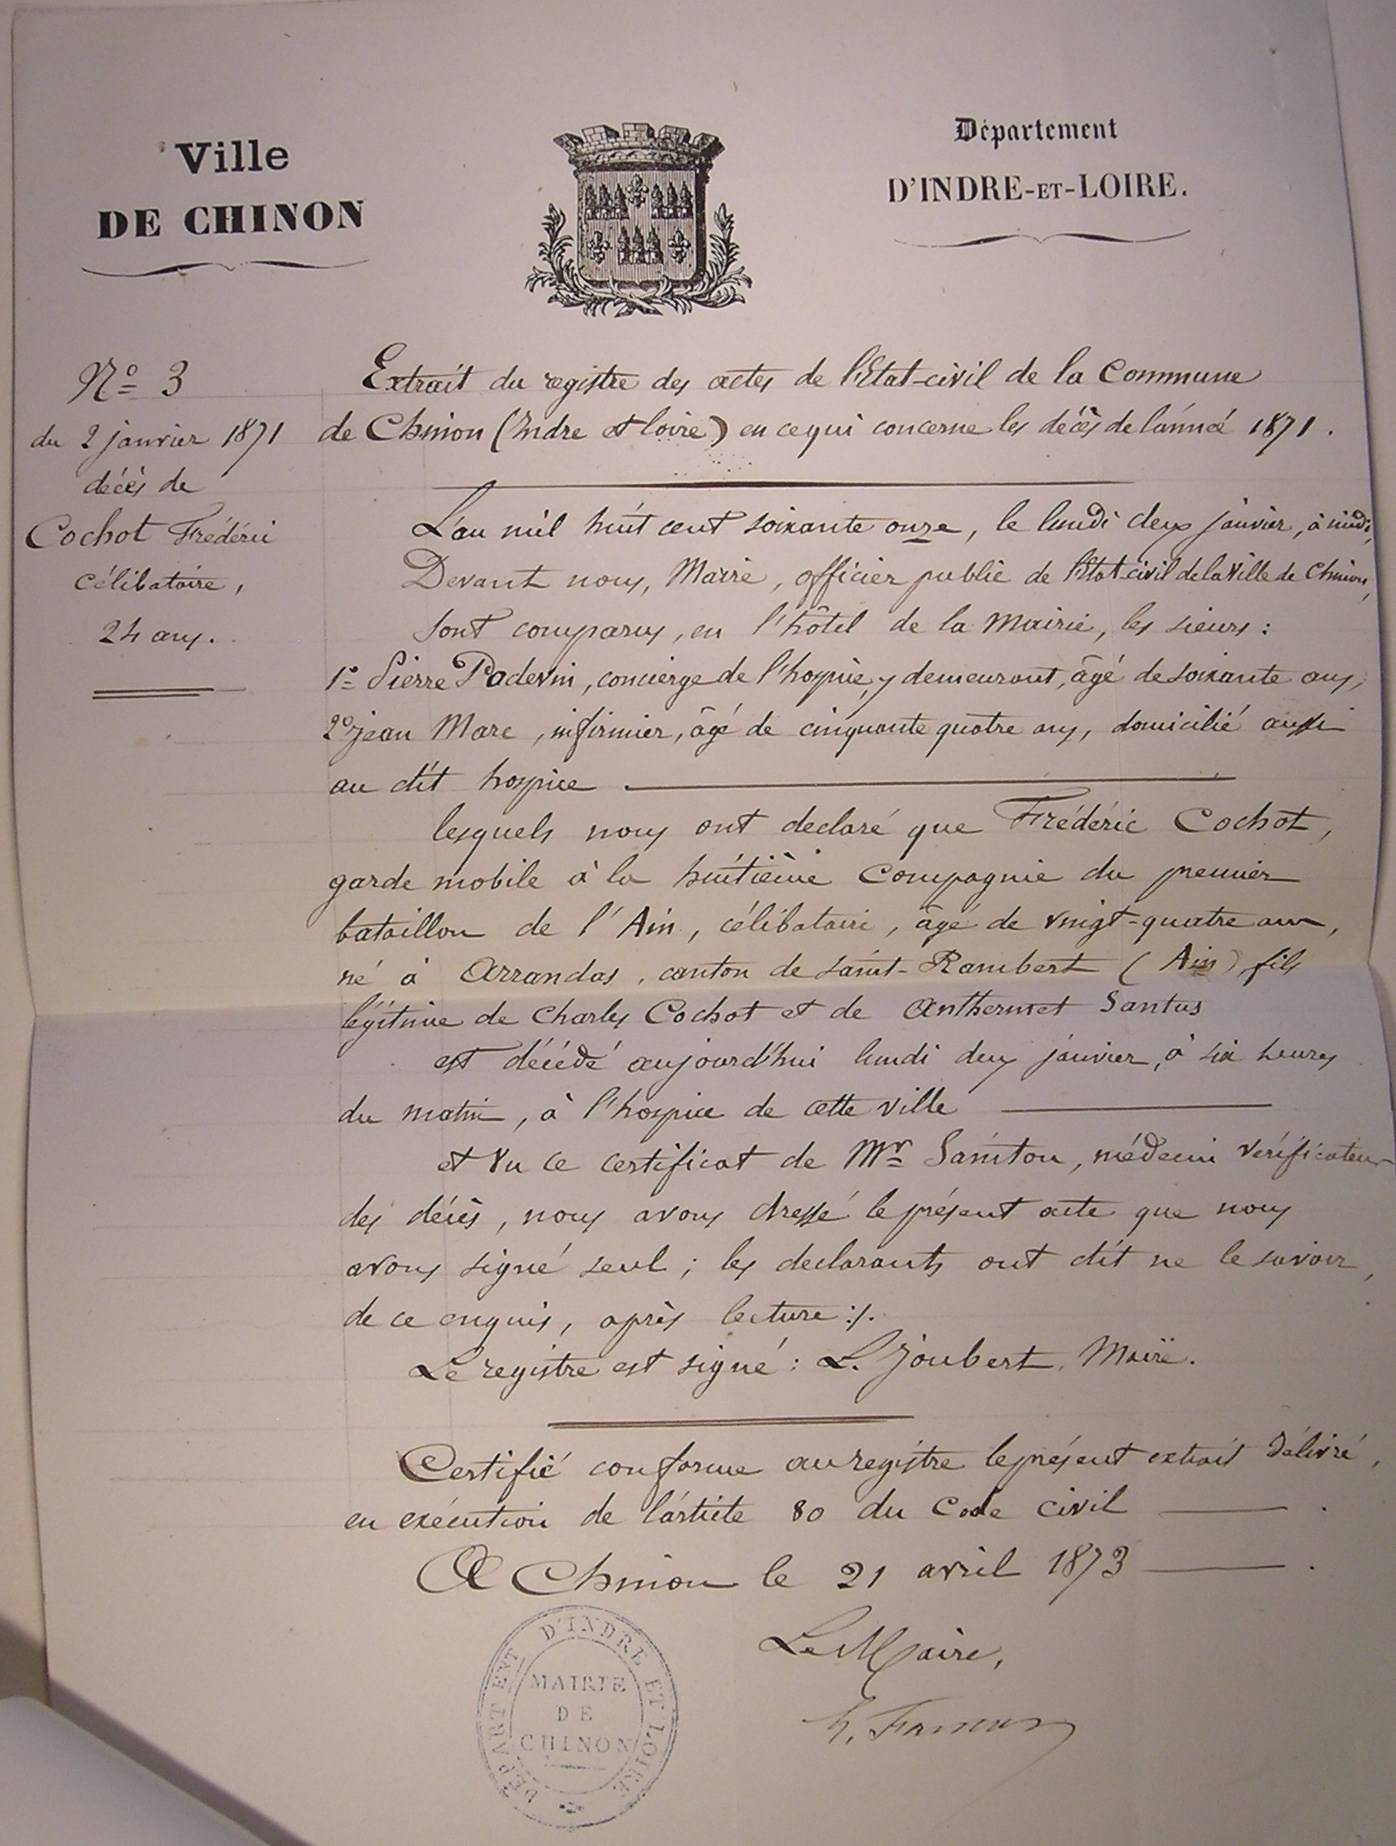 Ville
DE CHINON
Département
D'INDRE-ET-LOIRE.
No 3
du 2 janvier 1871
décès de
Cochot Frédéric
célibataire,
24 ans.
Extrait du registre des actes de l'Etat-civil de la Commune
de Chinon (Indre et Loire) en ce qui concerne les décès de l'année 1871.
L'an mil huit cent soixante onze, le lundi deux janvier, à midi,
Devant nous, Maire, officier public de l'Etat-civil de la Ville de Chinon,
sont comparus, en l'hôtel de la Mairie, les sieurs :
1o Pierre Padevin, concierge de l'hospice, y demeurant, âgé de soixante ans,
2o jean Marc, infirmier, âgé de cinquante quatre ans, domicilié aussi
au dit hospice
lesquels nous ont declaré que Frédéric Cochot,
garde mobile à la huitième Compagnie du premier
bataillon de l'Ain, célibataire, âgé de vingt-quatre ans,
né à Arrandas, canton de saint-Rambert (Ain) fils
légitime de Charles Cochot et de Anthermet Santus
est décédé aujourd'hui lundi deux janvier, à six heures
du matin, à l'hospice de cette ville
et vu ce certificat de Mr Sainton, médecin vérificateur
des décès, nous avons dressé le présent acte que nous
avons signé seul ; les declarants ont dit ne le savoir,
de ce enquis, après lecture :/.
Le registre est signé : L. Joubert, Maire.
Certifié conforme au registre le présent extrait délivré,
en exécution de l'article 80 du Code civil
A Chinon le 21 avril 1873
Le Maire,
DEPARTEMENT D'INDRE ET LOIRE
MAIRIE
DE
CHINON